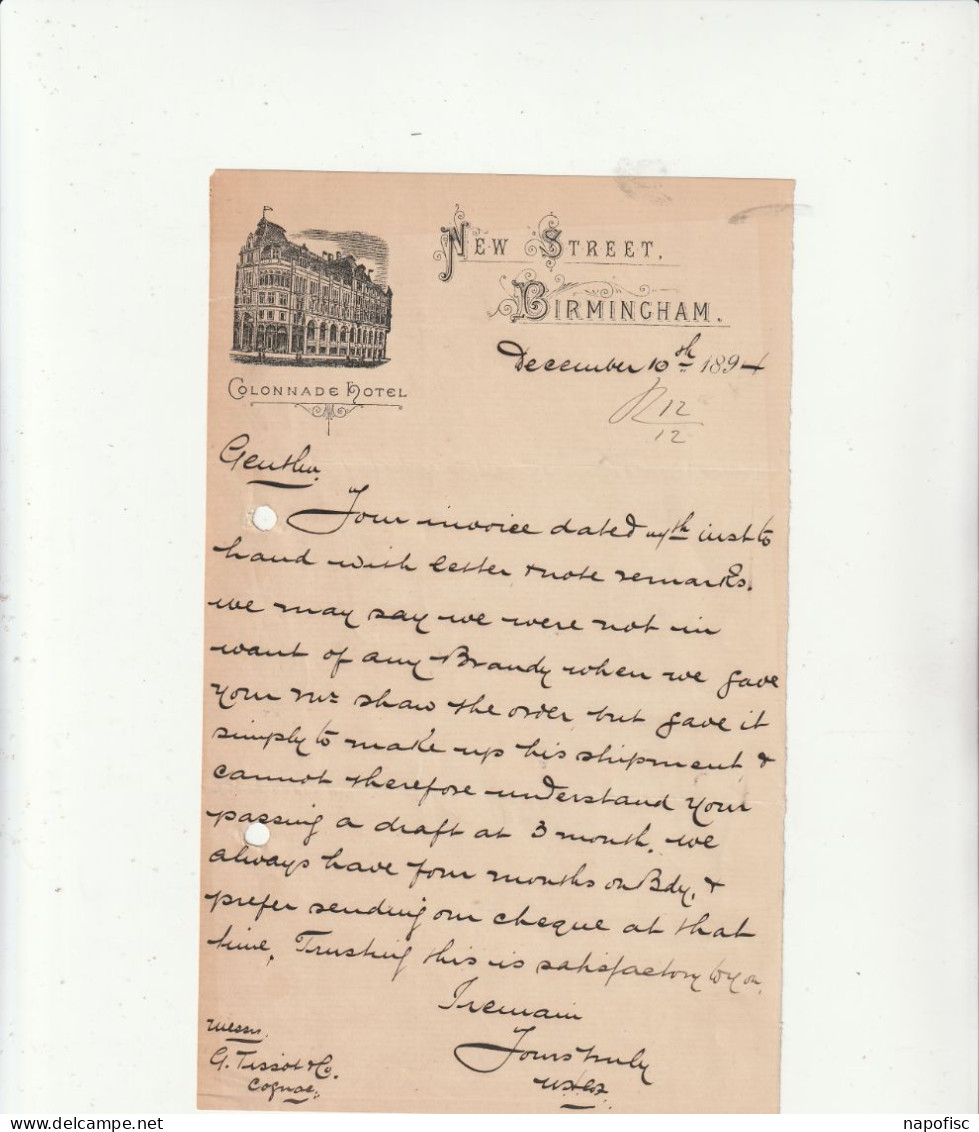 NEW STREET,
BIRMINGHAM.
COLONNADE HOTEL
December 10th 1894
12
12
Gentln
Your invoice dated inst to
hand with letter & note remarks.
we may say we were not in
want of any Brandy when we gave
your Mr Shaw the order but gave it
simply to make up his shipment &
cannot therefore understand your
passing a draft at 3 month. we
always have four months on Bdy, &
prefer sending our cheque at that
time. Trusting this is satisfactory to you,
I remain
Yours truly
Messrs.
G. Tissot & Co.
Cognac.
napofisc